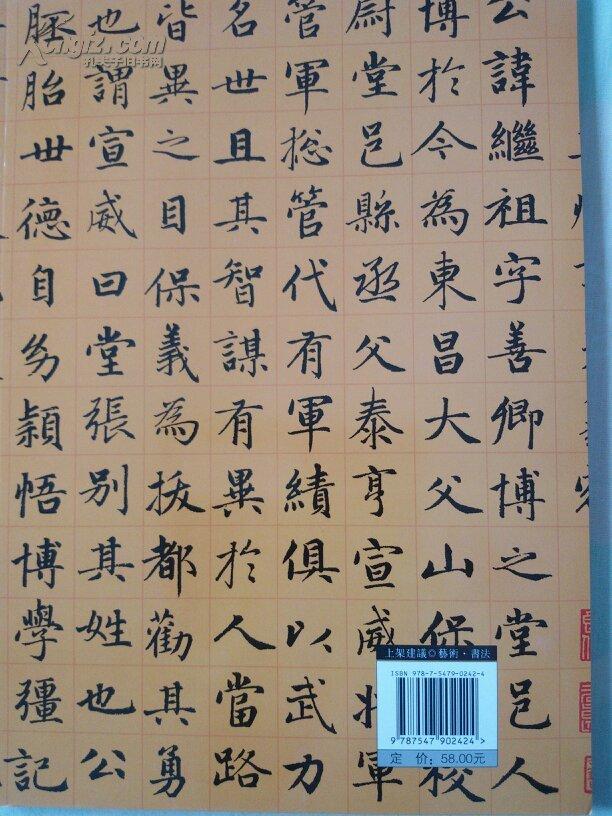 公諱繼祖字善卿博之堂邑人
博於今為東昌大父山保校
尉堂邑縣丞父泰亨宣威將軍
管軍総管代有軍績俱以武力
名世且其智謀有異於人當路
皆異之目保義為拔都勸其勇
也謂宣威曰堂張別其姓也公
胚胎世德自幼穎悟博學彊記
上架建議◎藝術·書法
ISBN 978-7-5479-0242-4
9 787547 902424 >
定 价: 58.00元
孔夫子旧书网